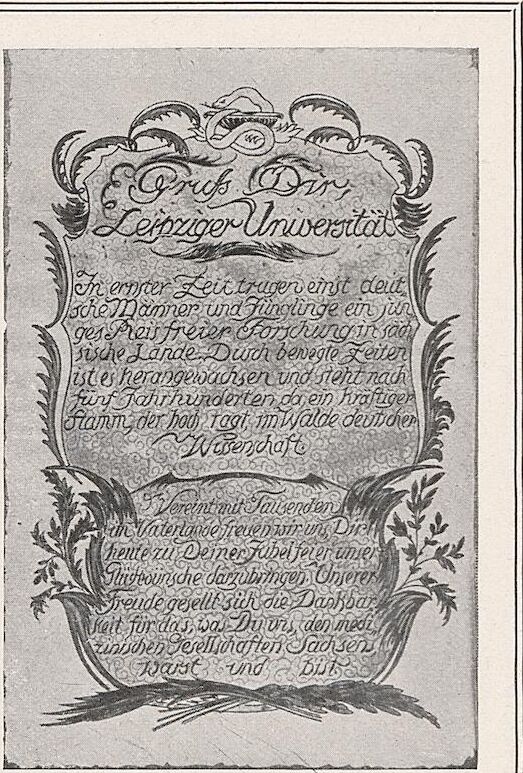 Gruß Dir,
Leipziger Universität
In ernster Zeit trugen einst deut,
sche Männer und Jünglinge ein jun,
ges Reis freier Forschung in säch
sische Lande. Durch bewegte Zeiten
ist es herangewachsen und steht nach
fünf Jahrhunderten da, ein kräftiger
Stamm, der hoch ragt im Walde deutscher
Wissenschaft.
Vereint mit Tausenden
im Vaterlande freuen wir uns, Dir
heute zu Deiner Jubelfeier unser
Glückwünsche darzubringen. Unserer
Freude gesellt sich die Dankbar,
keit für das, was Du uns, den medi,
zinischen Gesellschaften Sachsens
warst und bist.